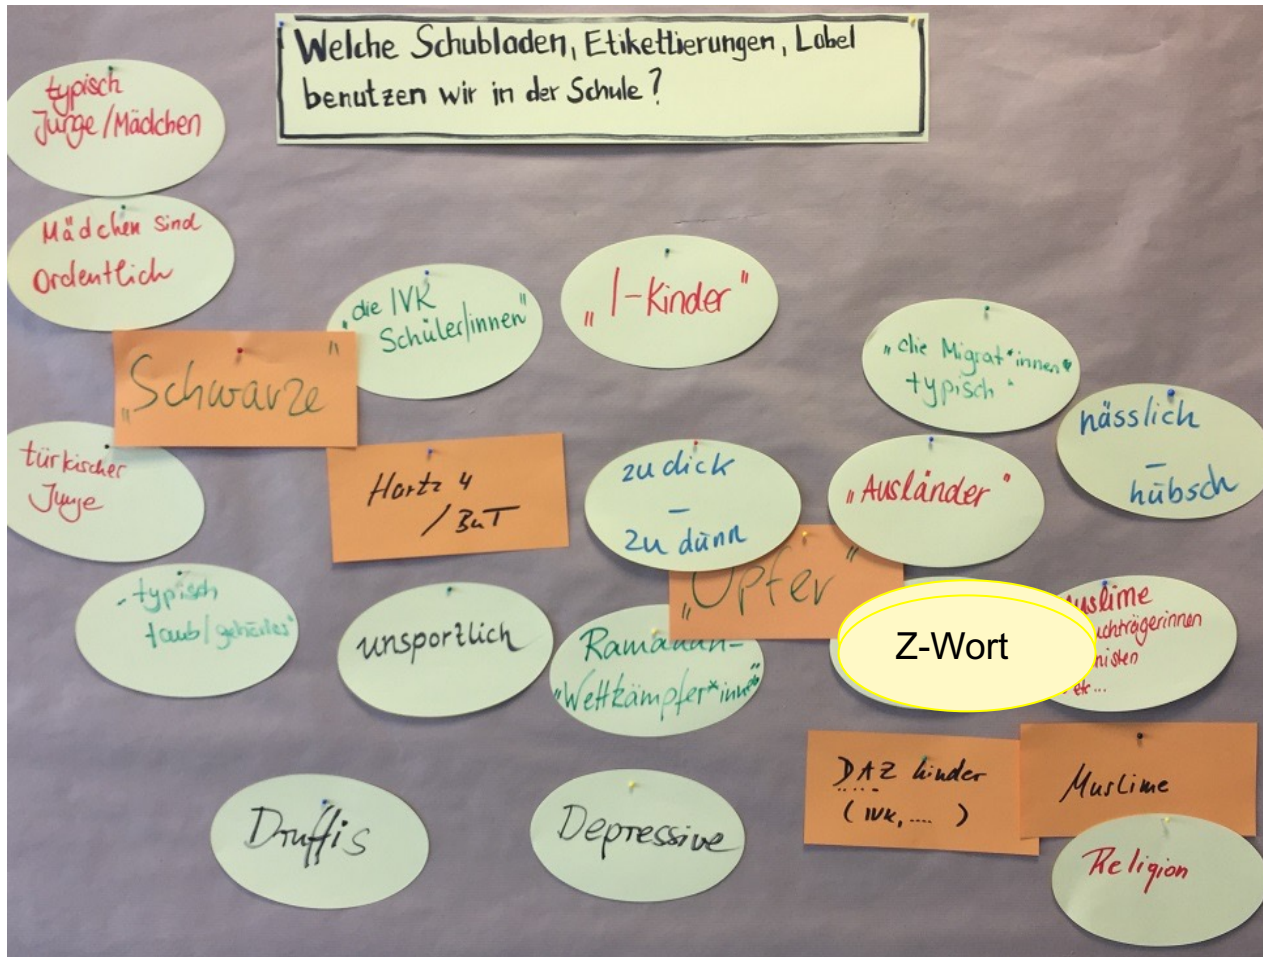 Welche Schubladen, Etikettierungen, Label
benutzen wir in der Schule?
typisch
Junge/Mädchen
Mädchen sind
ordentlich
"die IVK
Schüler/innen"
"I-Kinder"
"Schwarze"
"die Migrat*innen"
typisch"
hässlich
–
hübsch
türkischer
Junge
Hartz 4
/BuT
zu dick
–
zu dünn
"Ausländer"
"Opfer"
-typisch
taub/gehörlos"
unsportlich
Ramadan-
"Wettkämpfer*innen"
Z-Wort
uslime
uchträgerinnen
nisten
etc...
Druffis
Depressive
DAZ kinder
(IVK, .... )
Muslime
Religion